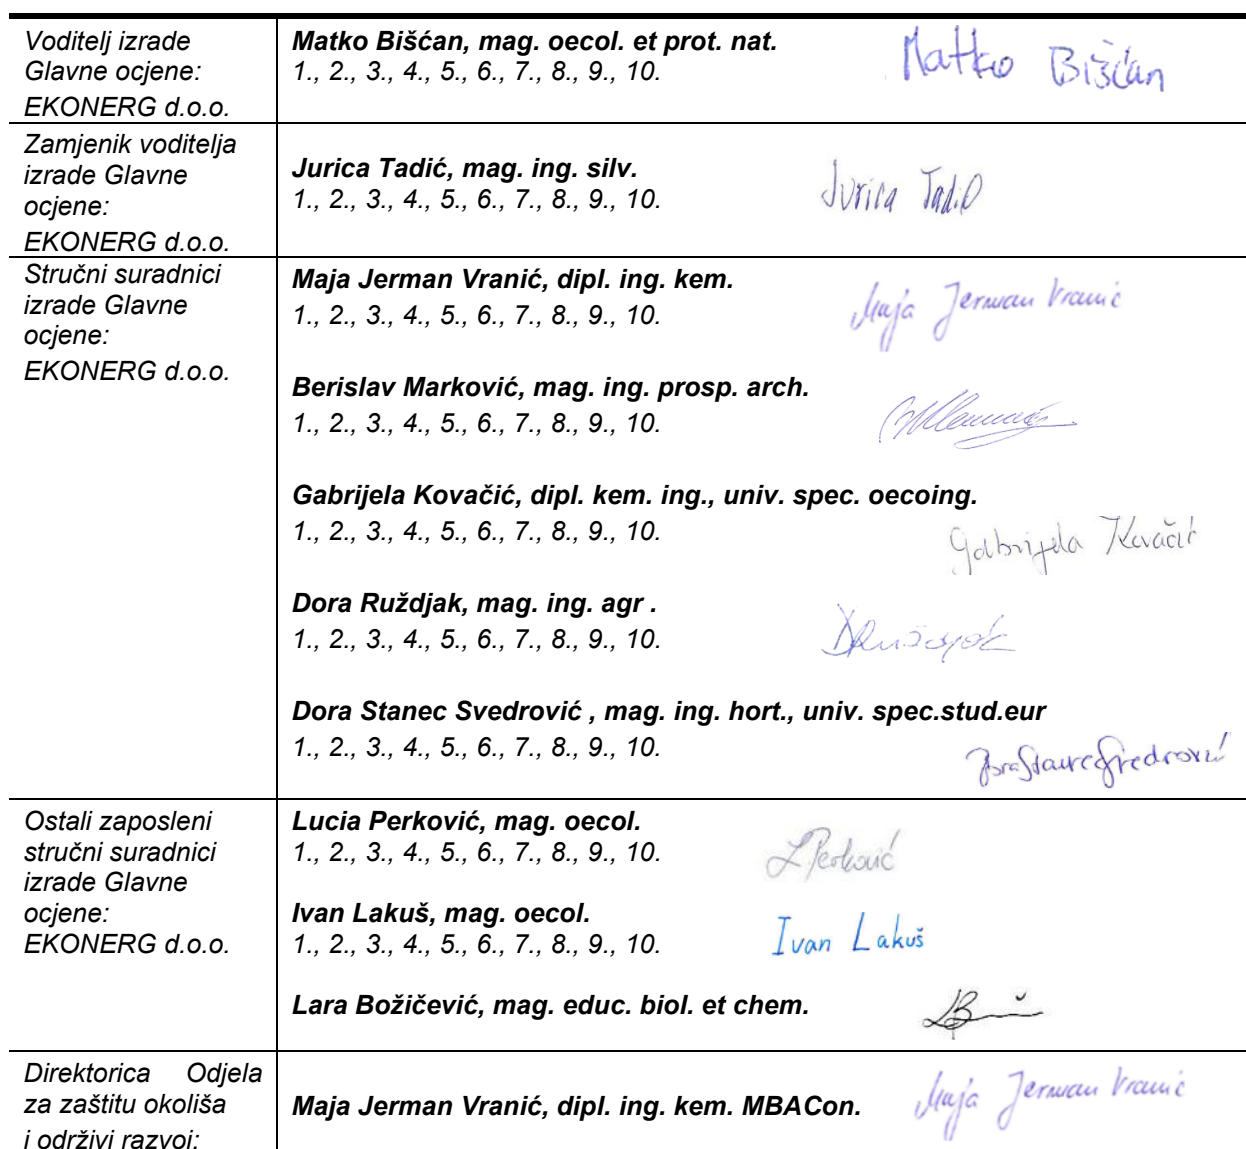 Voditelj izrade
Glavne ocjene:
EKONERG d.o.o.
Matko Bišćan, mag. oecol. et prot. nat.
1., 2., 3., 4., 5., 6., 7., 8., 9., 10.
Matko Bišćan
Zamjenik voditelja
izrade Glavne
ocjene:
EKONERG d.o.o.
Jurica Tadić, mag. ing. silv.
1., 2., 3., 4., 5., 6., 7., 8., 9., 10.
Jurica Tadić
Stručni suradnici
izrade Glavne
ocjene:
EKONERG d.o.o.
Maja Jerman Vranić, dipl. ing. kem.
1., 2., 3., 4., 5., 6., 7., 8., 9., 10.
Maja Jerman Vranić
Berislav Marković, mag. ing. prosp. arch.
1., 2., 3., 4., 5., 6., 7., 8., 9., 10.
Gabrijela Kovačić, dipl. kem. ing., univ. spec. oecoing.
1., 2., 3., 4., 5., 6., 7., 8., 9., 10.
Gabrijela Kovačić
Dora Ruždjak, mag. ing. agr .
1., 2., 3., 4., 5., 6., 7., 8., 9., 10.
DRuždjak
Dora Stanec Svedrović , mag. ing. hort., univ. spec.stud.eur
1., 2., 3., 4., 5., 6., 7., 8., 9., 10.
Dora Stanec Svedrović
Ostali zaposleni
stručni suradnici
izrade Glavne
ocjene:
EKONERG d.o.o.
Lucia Perković, mag. oecol.
1., 2., 3., 4., 5., 6., 7., 8., 9., 10.
LPerković
Ivan Lakuš, mag. oecol.
1., 2., 3., 4., 5., 6., 7., 8., 9., 10.
Ivan Lakuš
Lara Božičević, mag. educ. biol. et chem.
Direktorica Odjela
za zaštitu okoliša
i održivi razvoj:
Maja Jerman Vranić, dipl. ing. kem. MBACon.
Maja Jerman Vranić